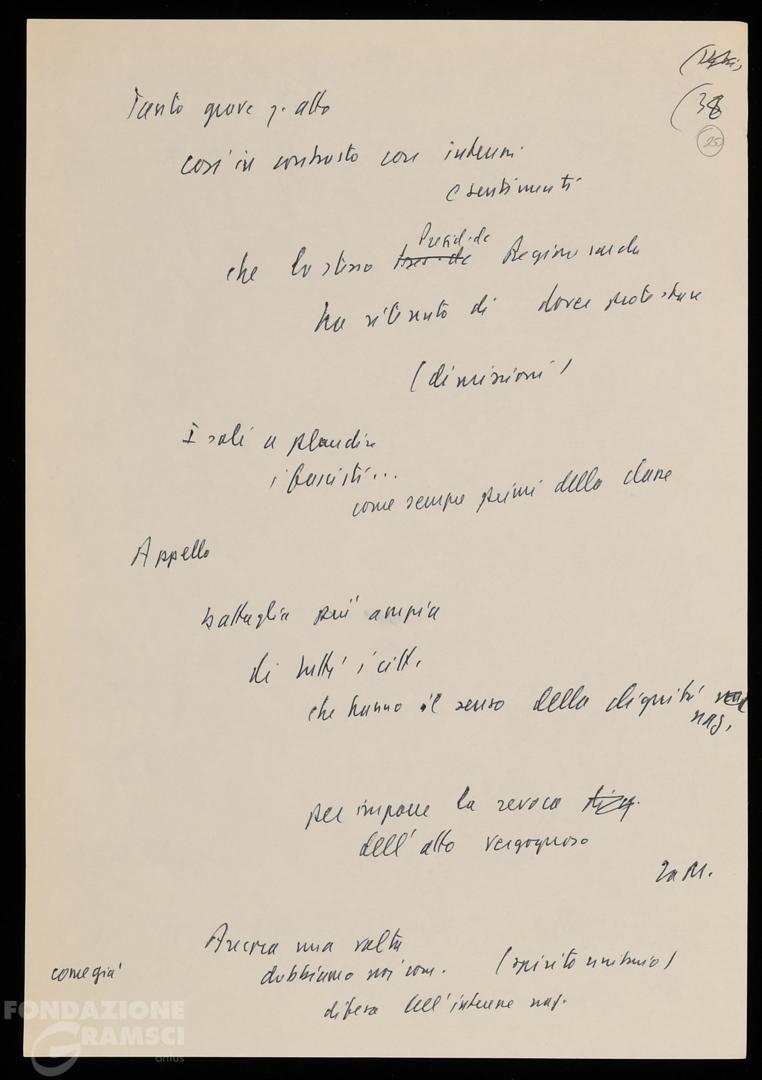 (38
25
Tanto grave q. atto
così in contrasto con interessi
e sentimenti
che lo stesso Presid. de Regione sarda
ha ritenuto di dover protestare
(dimissioni)
I soli a plaudire
i fascisti...
come sempre primi della classe
Appello
battaglia più ampia
di tutti i citt.
che hanno il senso della dignità
naz.
per imporre la revoca
dell'atto vergognoso
La M.
Ancora una volta
come già
dobbiamo noi com. (spirito unitario)
difesa dell'interesse naz.
FONDAZIONE
GRAMSCI
onlus